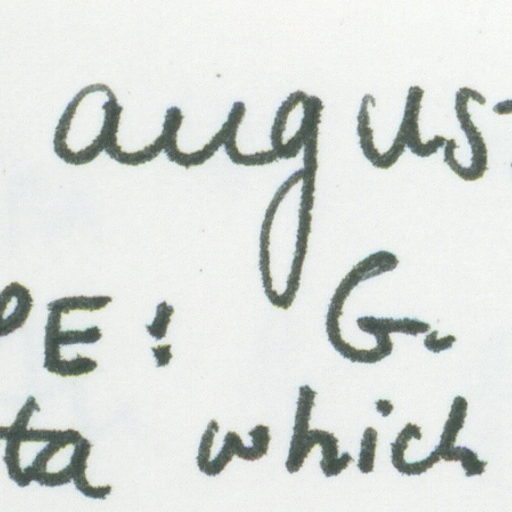 augus
PE: G.
ta which